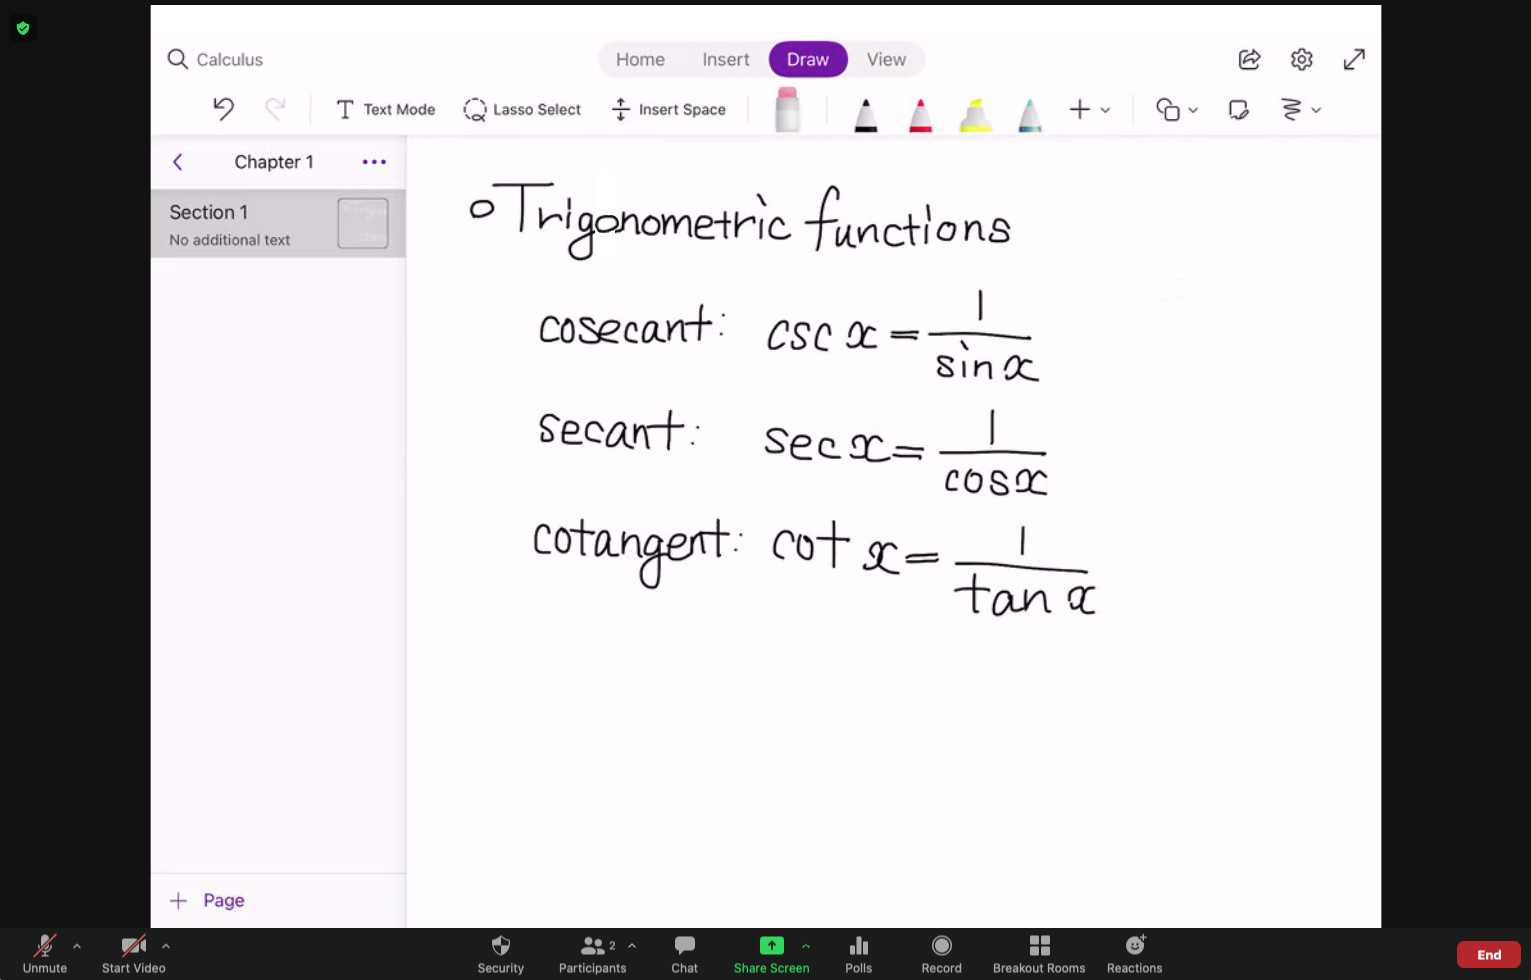 Calculus
Home Insert Draw View
Text Mode Lasso Select Insert Space
Chapter 1
Section 1
No additional text
Trigonometric functions
cosecant: csc x = 1/sin x
secant: sec x = 1/cos x
cotangent: cot x = 1/tan x
+ Page
Unmute Start Video Security Participants 2 Chat Share Screen Polls Record Breakout Rooms Reactions End